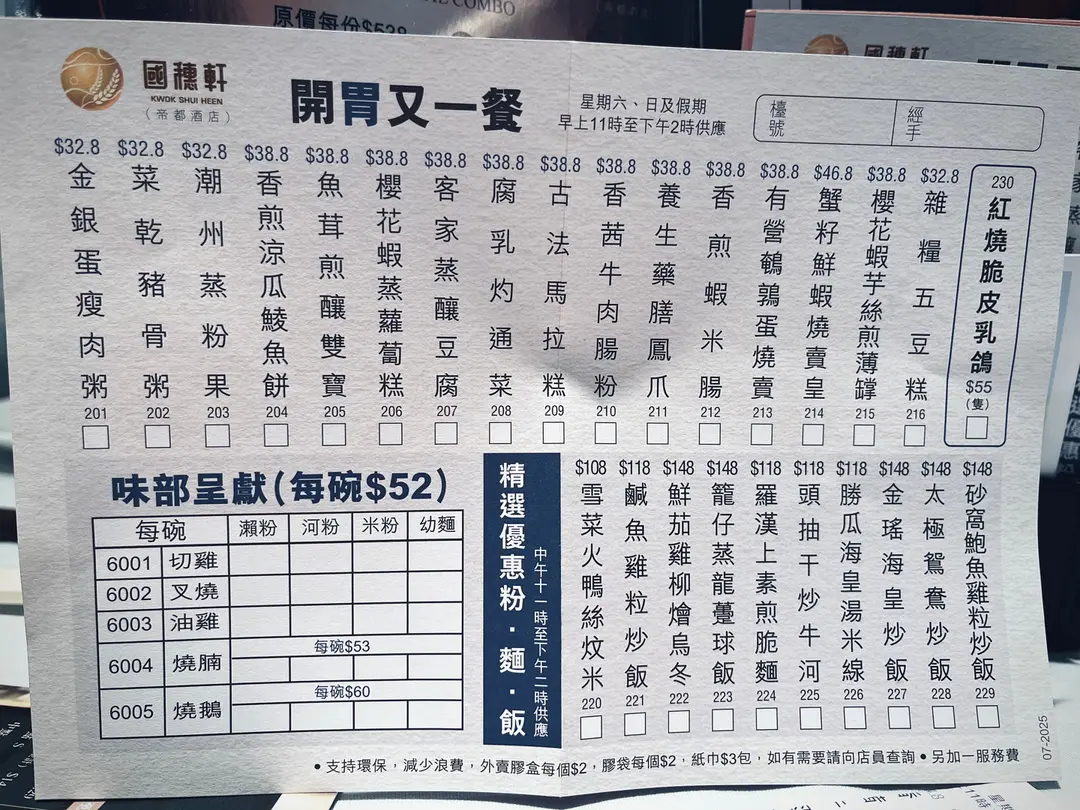 原價每份$528
COMBO
國穗軒
KWOK SHUI HEEN
(帝都酒店)
開胃又一餐
星期六、日及假期
早上11時至下午2時供應
檯號
經手
國穗軒
$32.8 金銀蛋瘦肉粥 201
$32.8 菜乾豬骨粥 202
$32.8 潮州蒸粉果 203
$38.8 香煎涼瓜鯪魚餅 204
$38.8 魚茸煎釀雙寶 205
$38.8 櫻花蝦蒸蘿蔔糕 206
$38.8 客家蒸釀豆腐 207
$38.8 腐乳灼通菜 208
$38.8 古法馬拉糕 209
$38.8 香茜牛肉腸粉 210
$38.8 養生藥膳鳳爪 211
$38.8 香煎蝦米腸 212
$38.8 有營鵪鶉蛋燒賣 213
$46.8 蟹籽鮮蝦燒賣皇 214
$38.8 櫻花蝦芋絲煎薄罉 215
$32.8 雜糧五豆糕 216
230 紅燒脆皮乳鴿 $55 (隻)
味部呈獻(每碗$52)
每碗 瀨粉 河粉 米粉 幼麵
6001 切雞
6002 叉燒
6003 油雞
每碗$53
6004 燒腩
每碗$60
6005 燒鵝
精選優惠粉.麵.飯
中午十一時至下午二時供應
$108 雪菜火鴨絲炆米 220
$118 鹹魚雞粒炒飯 221
$148 鮮茄雞柳燴烏冬 222
$148 籠仔蒸龍躉球飯 223
$118 羅漢上素煎脆麵 224
$118 頭抽干炒牛河 225
$118 勝瓜海皇湯米線 226
$148 金瑤海皇炒飯 227
$148 太極鴛鴦炒飯 228
$148 砂窩鮑魚雞粒炒飯 229
•支持環保，減少浪費，外賣膠盒每個$2，膠袋每個$2，紙巾$3包，如有需要請向店員查詢•另加一服務費
07-2025